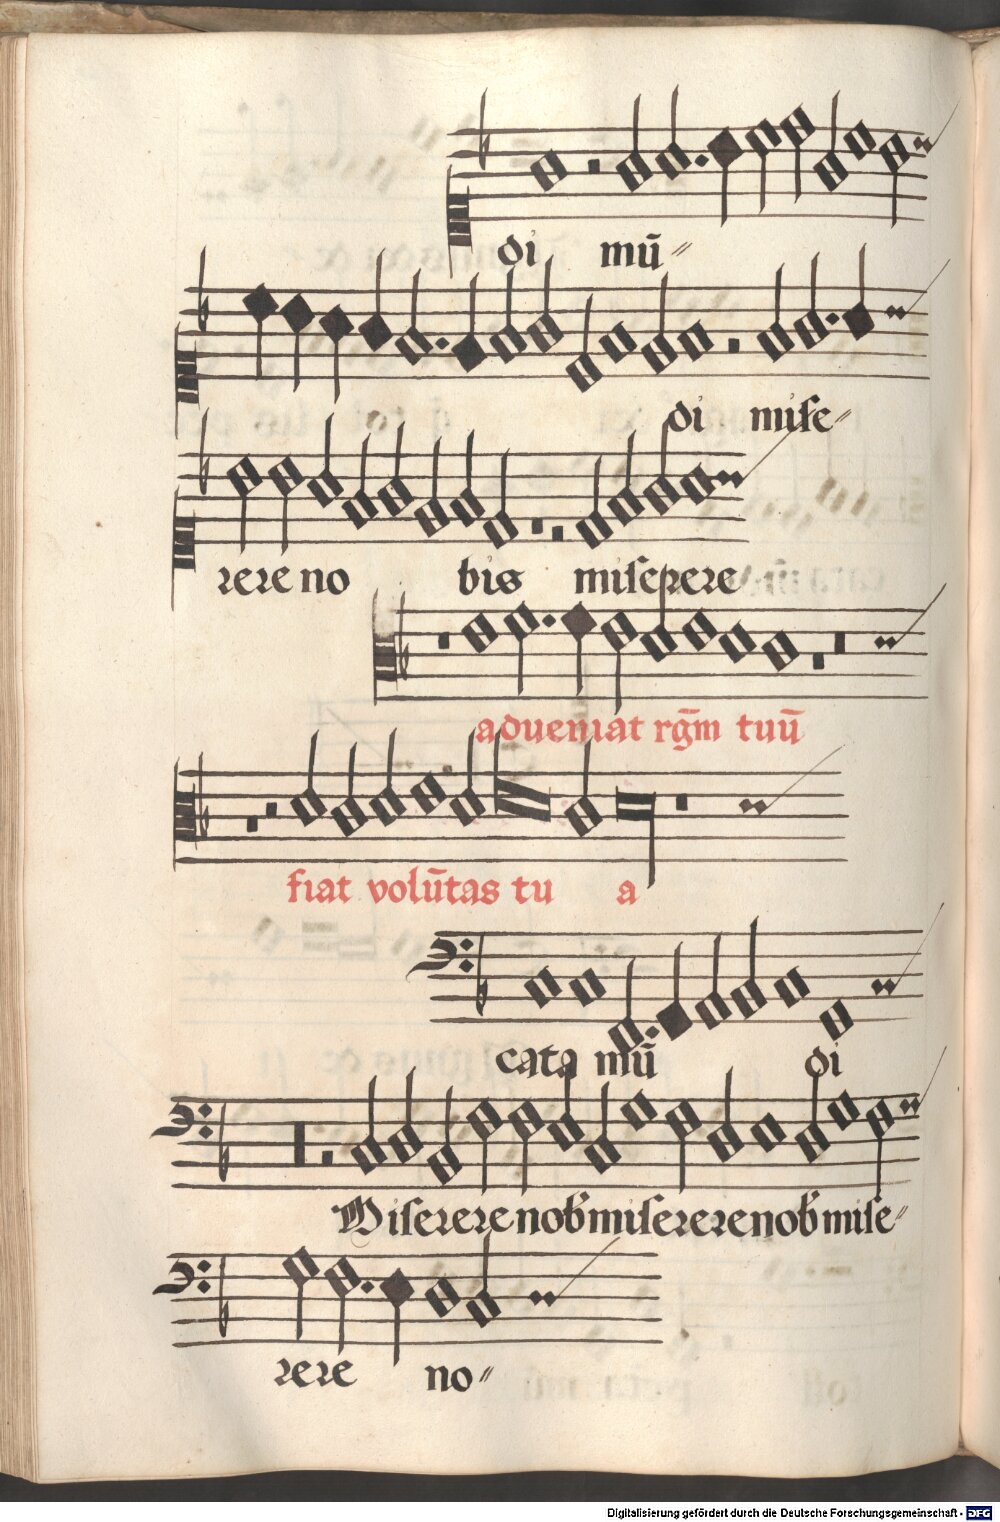 di mū
di mise
rere no bis miserere
adueniat rg̃m tuū
fiat volūtas tu a
cata mū di
Miserere nob̾ miserere nob̾ mise
rere no
Digitalisierung gefördert durch die Deutsche Forschungsgemeinschaft - DFG